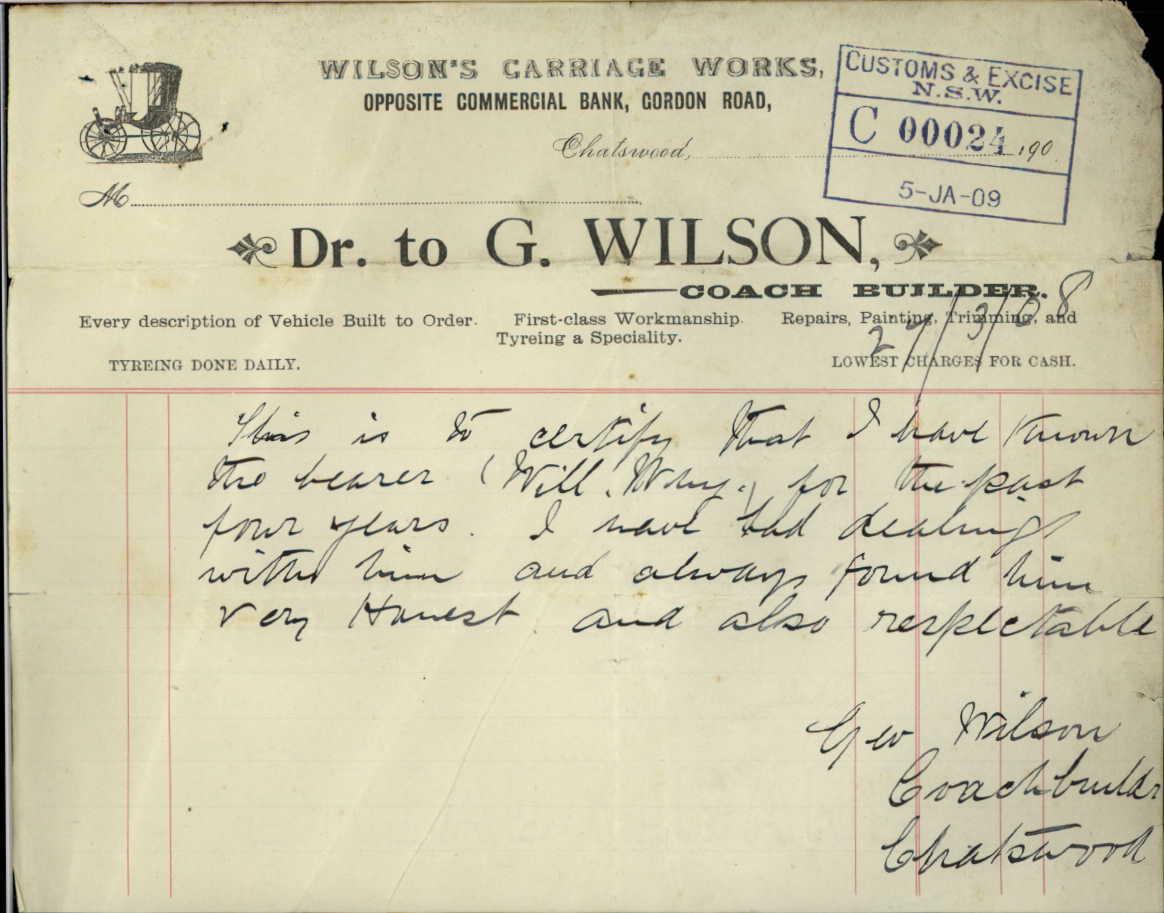 WILSON'S CARRIAGE WORKS,
OPPOSITE COMMERCIAL BANK, GORDON ROAD,
Chatswood, 190
CUSTOMS & EXCISE
N.S.W.
C 00024
5-JA-09
M
Dr. to G. WILSON,
COACH BUILDER.
Every description of Vehicle Built to Order. First-class Workmanship. Repairs, Painting, Trimming, and
Tyreing a Speciality.
TYREING DONE DAILY. LOWEST CHARGES FOR CASH.
27/3/08
This is to certify that I have known
the bearer (Will. Why.) for the past
four years. I have had dealings
with him and always found him
very Honest and also respectable
Geo Wilson
Coachbuilder
Chatswood